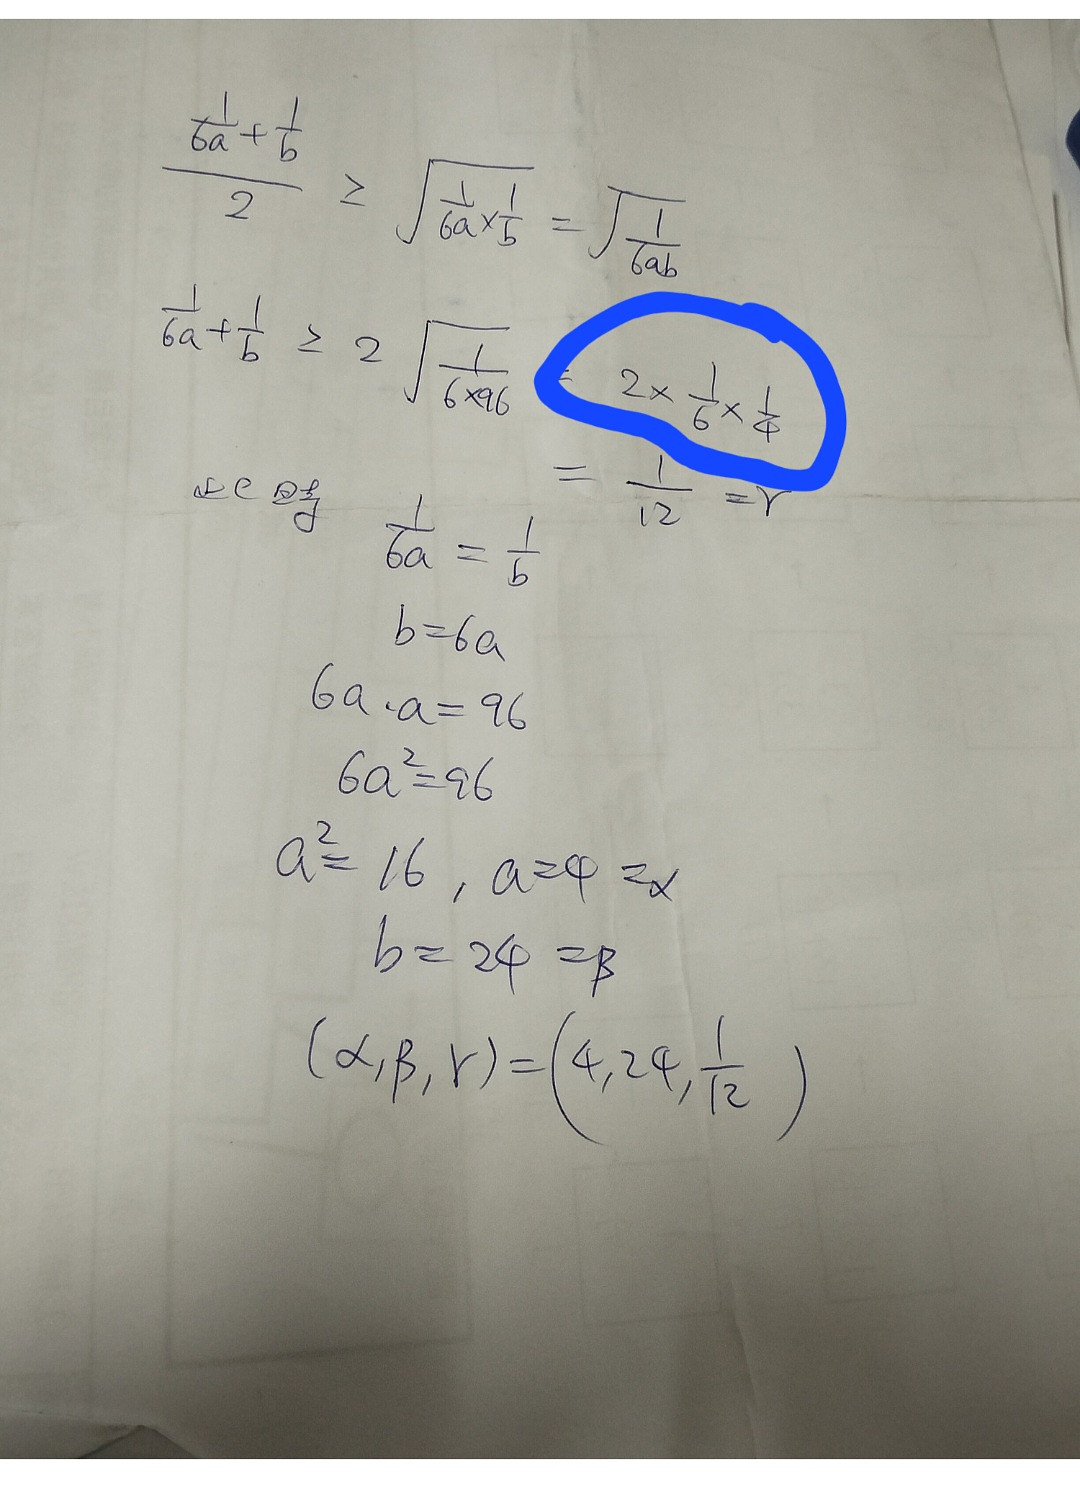 (1/6a + 1/b)/2 ≥ √(1/6a × 1/b) = √(1/6ab)
1/6a + 1/b ≥ 2√(1/(6×96)) = 2 × 1/6 × 1/4
= 1/12 = γ
1/6a = 1/b
b = 6a
6a · a = 96
6a² = 96
a² = 16 , a = 4 = α
b = 24 = β
(α, β, γ) = (4, 24, 1/12)